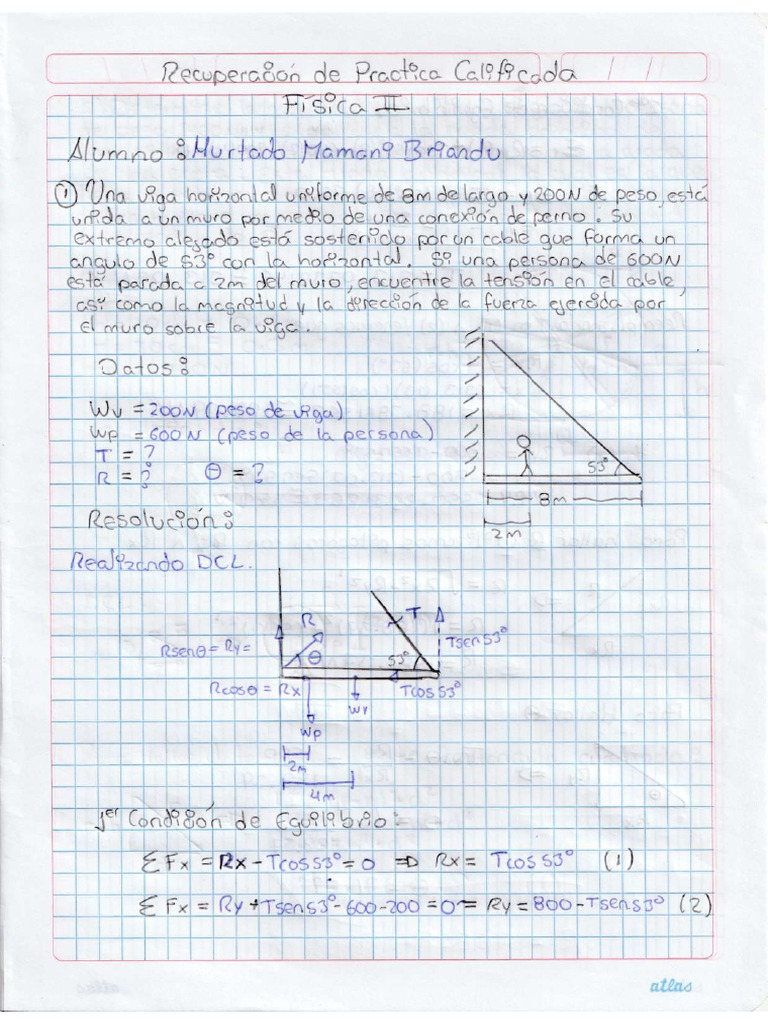 Recuperasión de Practica Calificada
Física II.
Alumno : Hurtado Mamani Briandu
① Una viga horizontal uniforme de 8m de largo y 200N de peso, está
unida a un muro por medio de una conexión de perno. Su
extremo alejado está sostenido por un cable que forma un
angulo de 53° con la horizontal. Si una persona de 600N
está parada a 2m del muro, encuentre la tensión en el cable,
asi como la magnitud y la dirección de la fuerza ejercida por
el muro sobre la viga.
Datos:
Wv = 200N (peso de viga)
Wp = 600N (peso de la persona)
T = ?
R = ? θ = ?
53°
8m
2m
Resolución:
Realizando DCL.
R
T
Rsenθ = Ry =
θ
53°
Tsen53°
Rcosθ = Rx
Tcos53°
Wv
Wp
2m
4m
1er Condisión de Equilibrio:
ΣFx = Rx - Tcos53° = 0 ⇒ Rx = Tcos53° (1)
ΣFx = Ry + Tsen53° - 600 - 200 = 0 = Ry = 800 - Tsen53° (2)
atlas